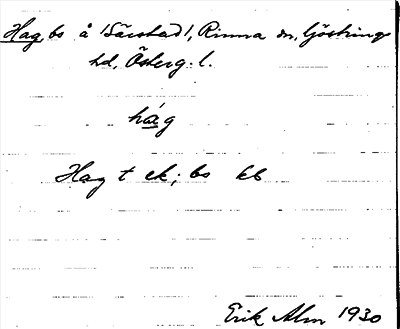 Hag, bs å 'Särstad', Rinna sn, Göstrings
hd, Österg. l.
håg
Hag t ek; bs kb
Erik Alm 1930